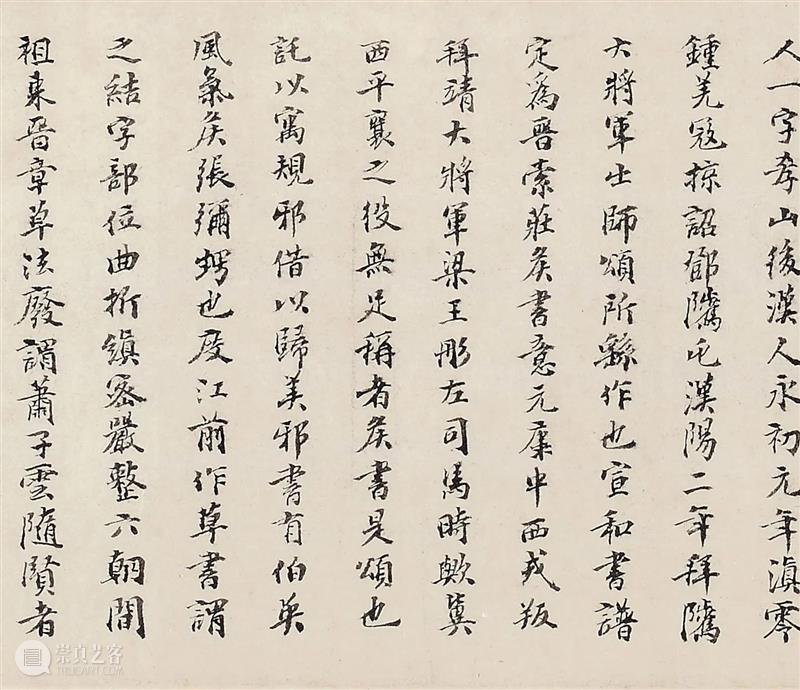 人一字孝山後漢人永初元年滇零
鍾羌寇掠詔鄧騭屯漢陽二年拜騭
大將軍出師頌所繇作也宣和書譜
定為晉索莊矦書意元康中西戎叛
拜靖大將軍梁王肜左司馬時歟冀
西平襄之役無足稱者矦書是頌也
託以寓規邪借以歸美邪書有伯英
風氣矦張彌甥也度江前作草書謂
之結字部位曲折縝密嚴整六朝間
祖東晉章草法廢謂蕭子雲隨賢者
崇真艺客
WWW.TRUEART.COM